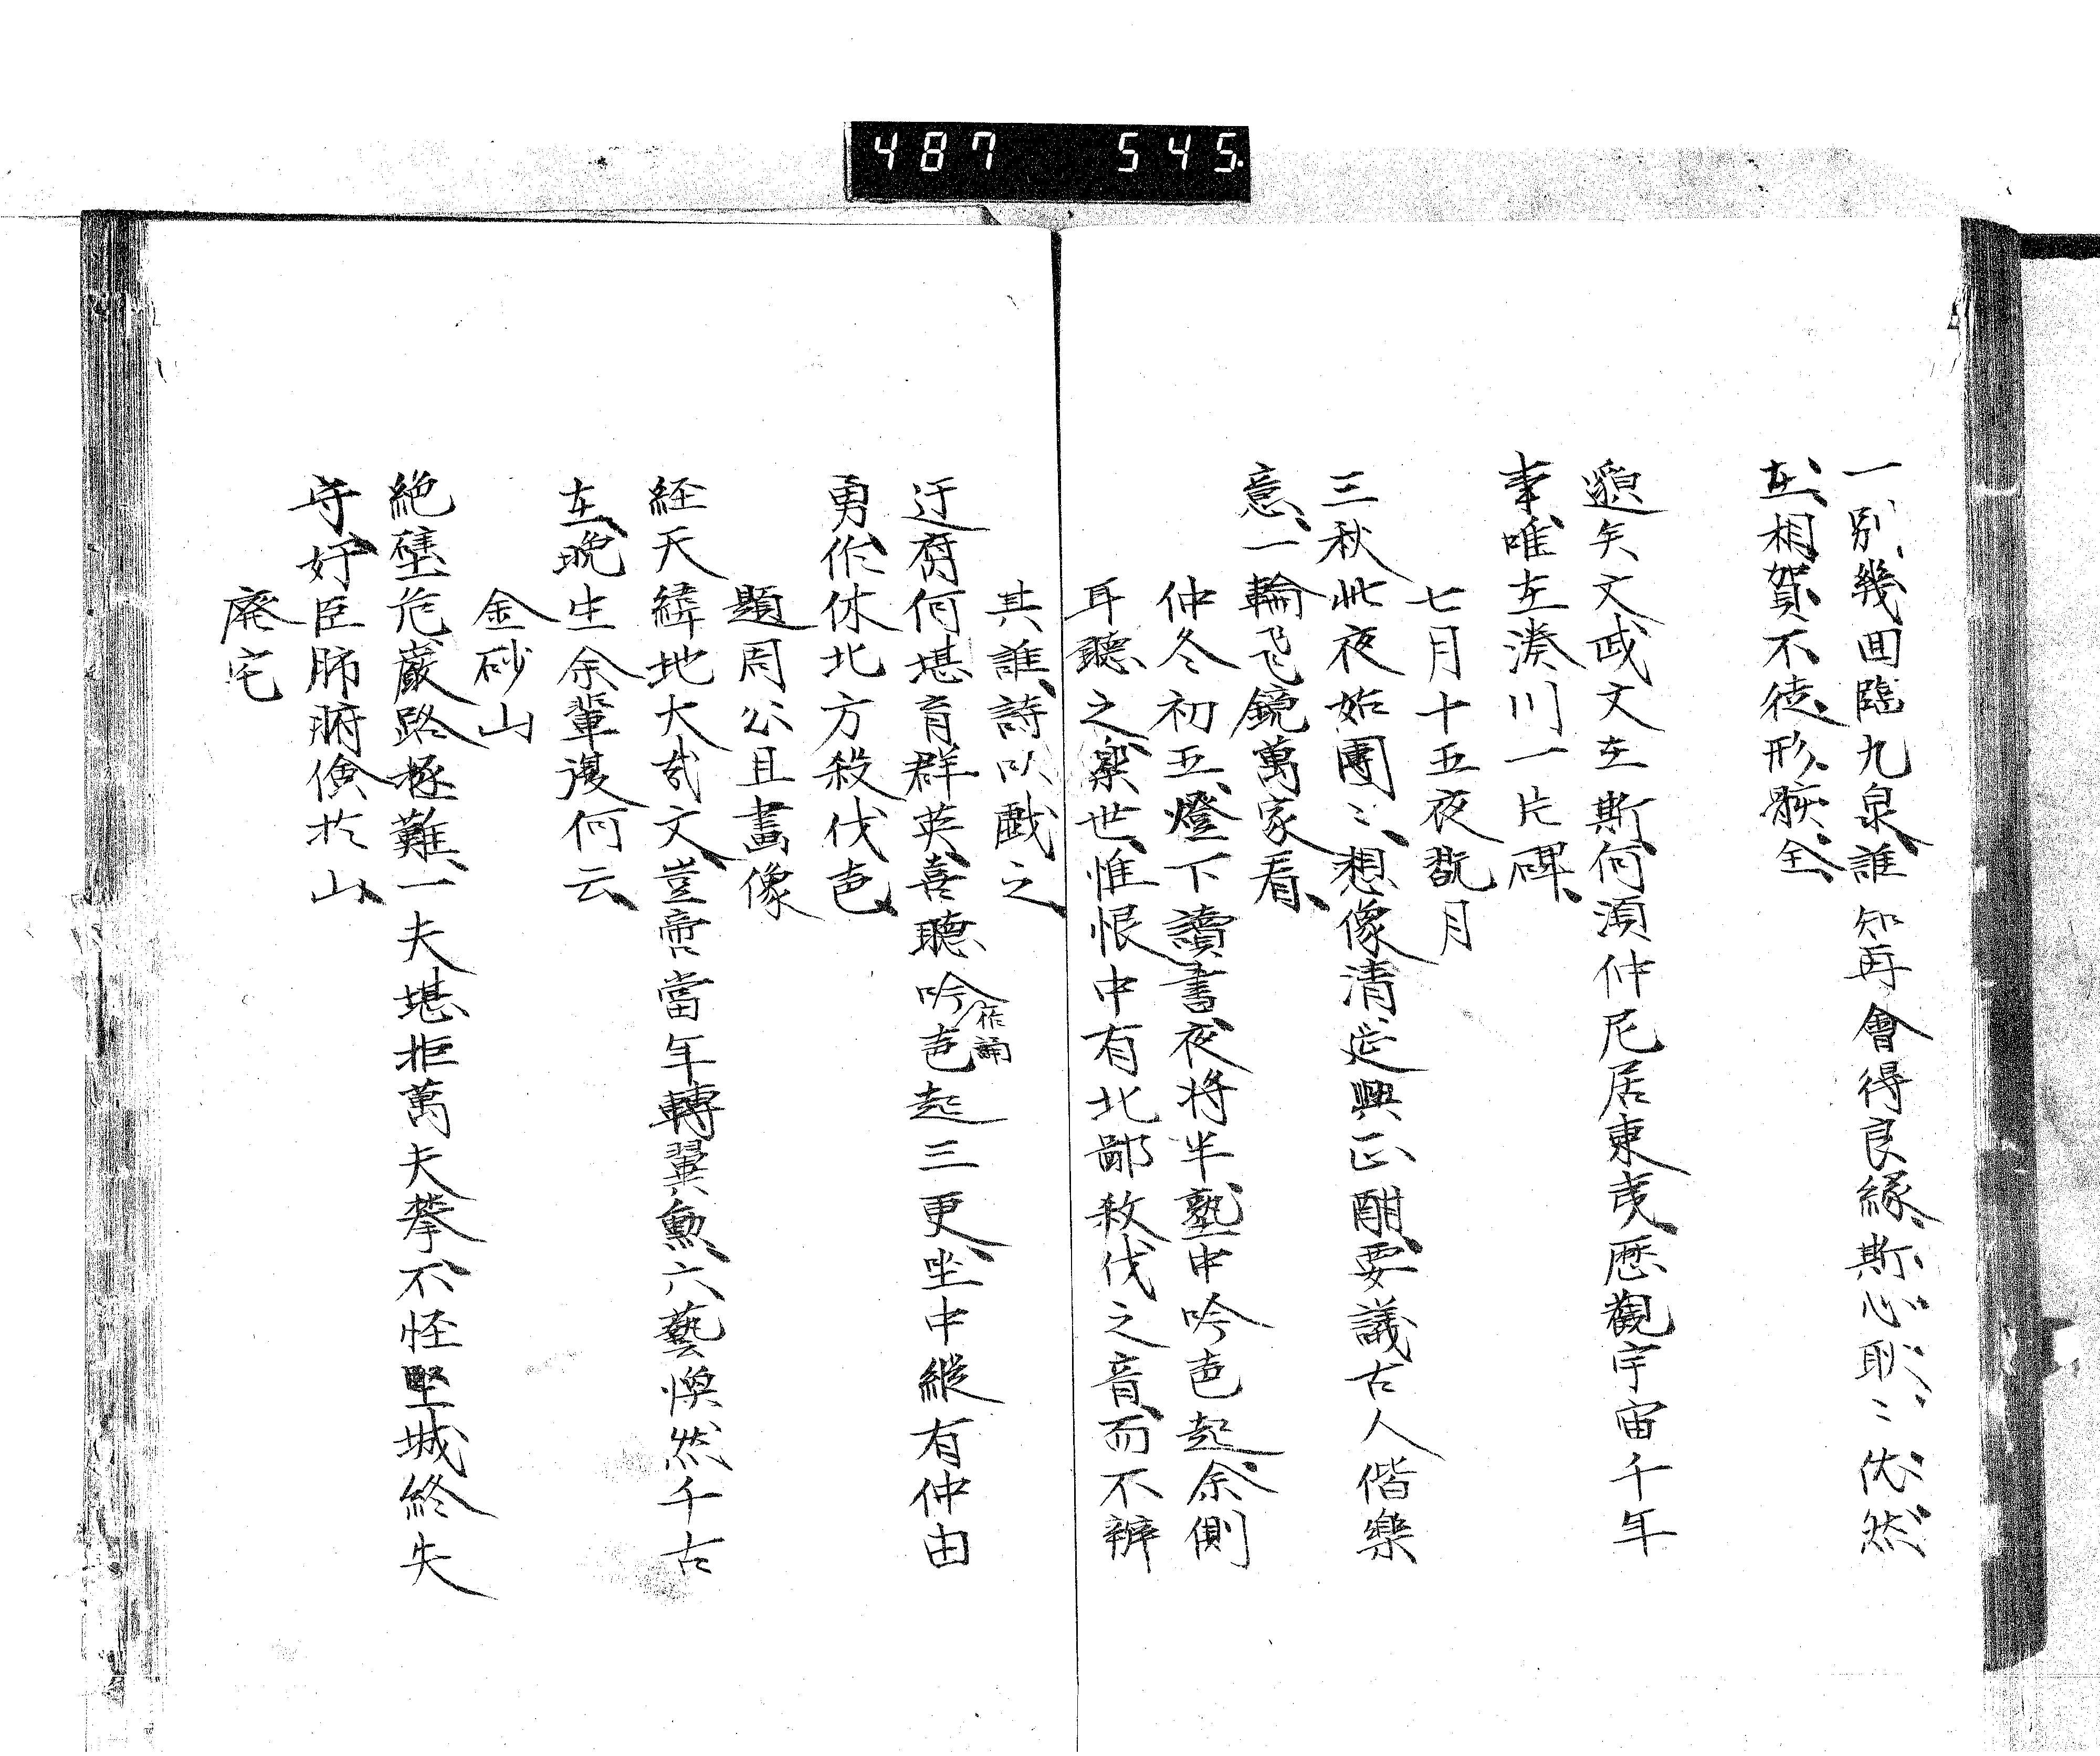 487 545.
一別幾回臨九泉誰知再會得良縁斯心耿〻依然
在相賀不徒形骸全
邈矣文武文在斯何須仲尼居東夷歴觀宇宙千年
事唯在湊川一片碑
七月十五夜翫月
三秋此夜始團〻想像清筵興正酣要議古人偕樂
意一輪飛鏡萬家看
仲冬初五燈下讀書夜将半塾中吟声起余側
耳聽之楽世惟恨中有北鄙殺伐之音而不辨
其誰詩以戯之
迂腐何堪育群英喜聽吟声起三更坐中縦有仲由
作誦
勇作休北方殺伐声
題周公旦畫像
経天緯地大哉文豈啻當年轉翼勲六藝煥然千古
在晩生余輩復何云
金砂山
絶壁危巌路極難一夫堪拒萬夫攀不怪堅城終失
守奸臣肺腑倹於山
廃宅